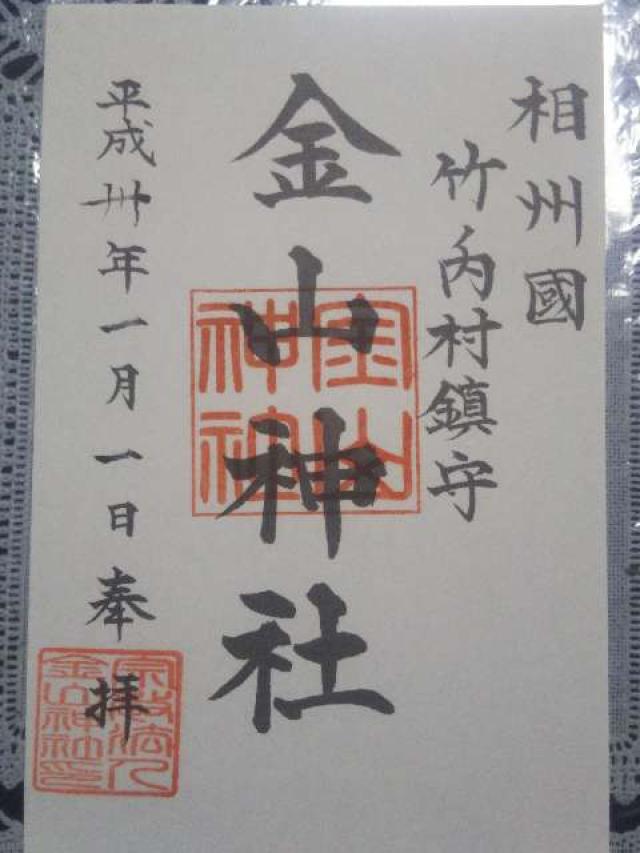 相州國
竹内村鎮守
金山神社
金山神社
平成卅年一月一日奉拝
宗教法人金山神社印